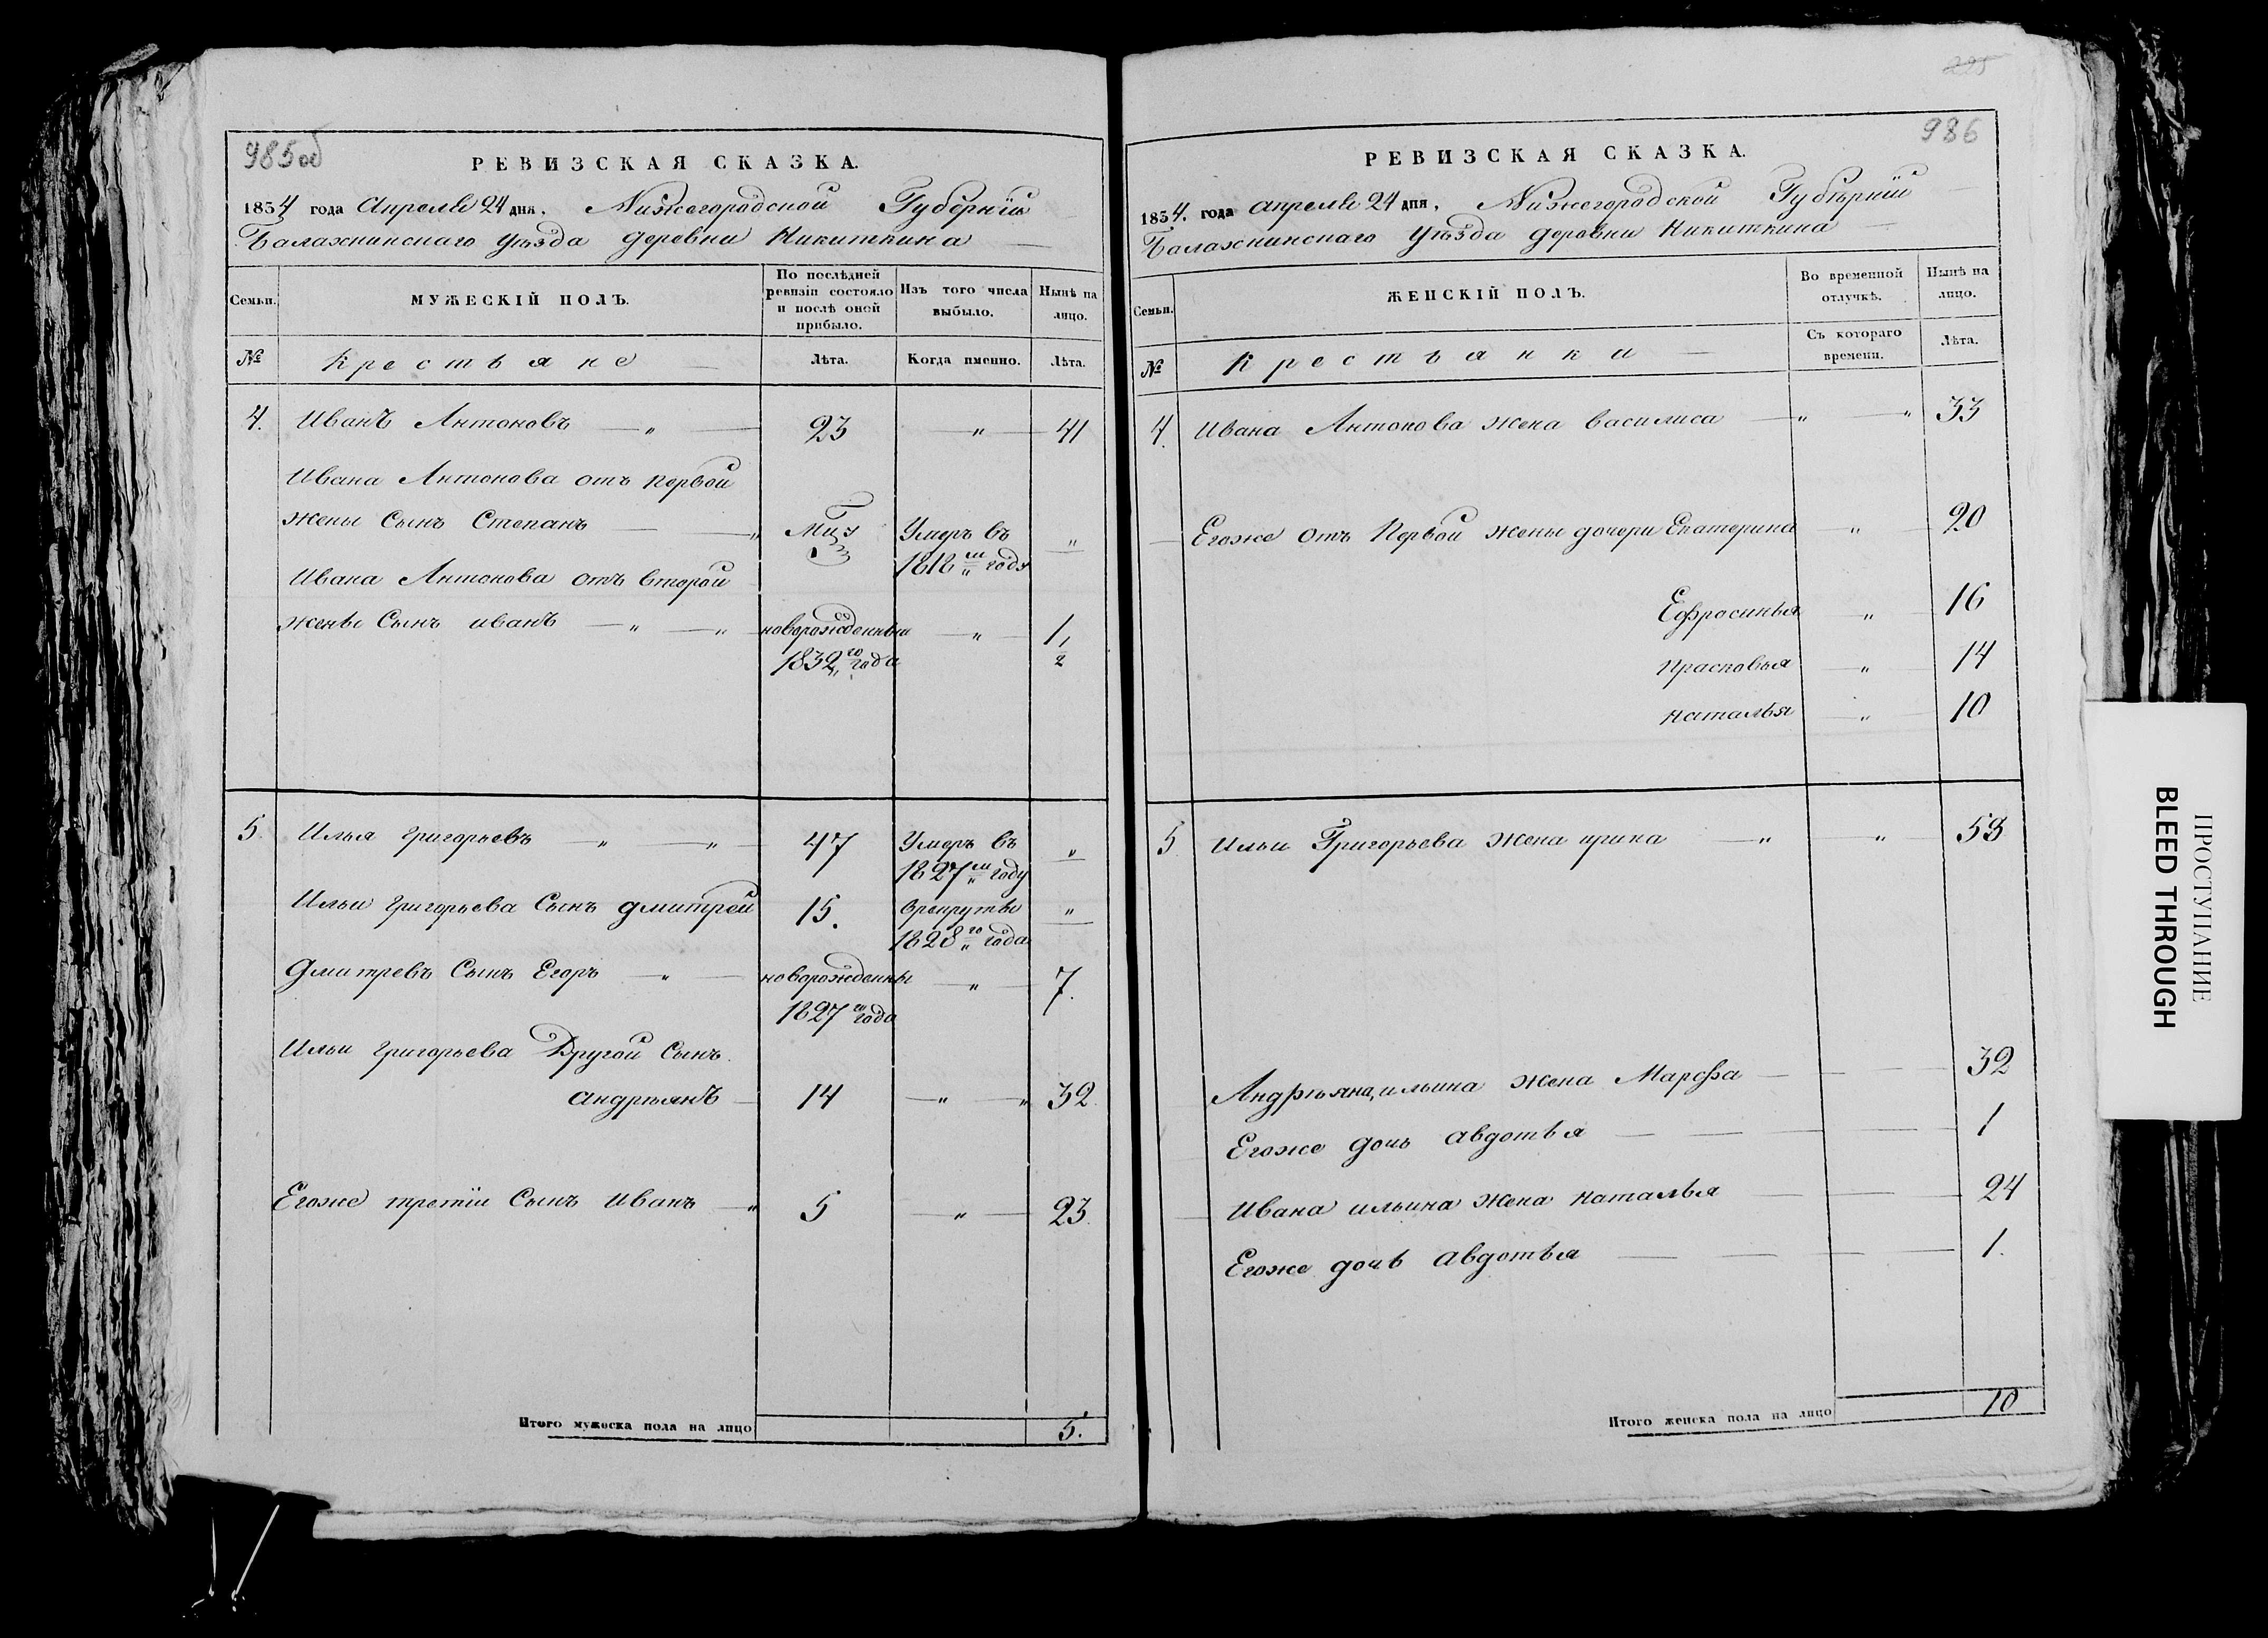 985 об
РЕВИЗСКАЯ СКАЗКА.
1834 года Апреля 24 дня, Нижегородской Губерніи
Балахнинскаго уѣзда деревни Никиткина
Семьи.
МУЖЕСКІЙ ПОЛЪ.
По послѣдней ревизіи состояло и послѣ оной прибыло.
Изъ того числа выбыло.
Нынѣ на лицо.
№
Крестьяне
Лѣта.
Когда именно.
Лѣта.
4. Иванъ Антоновъ — „ — 23 „ 41
Ивана Антонова отъ первой
жены Сынъ Степанъ — „ Умеръ въ „
1818 м году
Ивана Антонова отъ второй
жены Сынъ иванъ — „ — „ новорожденный — „ — 1 1/2
1832 го года
5. Илья григорьевъ — „ — „ — 47 Умеръ въ „
1827 м году
Ильи григорьева Сынъ дмитрей 15. врекруты „
1828 го года
дмитревъ Сынъ Егоръ — „ — новорожденны — „ — 7.
1827 го года
Ильи григорьева Другой Сынъ.
андреянъ — 14 — „ — „ 32.
Егоже третіи Сынъ иванъ — „ 5 — „ — 23.
Итого мужеска пола на лицо 5.
295
986
РЕВИЗСКАЯ СКАЗКА.
1834. года апреля 24 дня, Нижегородской Губѣрніи
Балахнинскаго уѣзда деровни Никиткина
Семьи.
ЖЕНСКІЙ ПОЛЪ.
Во временной отлучкѣ.
Нынѣ на лицо.
№
Крестьянки
Съ котораго времени.
Лѣта.
4. Ивана Антонова жена василиса — „ — „ 33
Егоже отъ Первой жены дочери Екатерина — „ — 20
Ефросинья „ 16
Прасковья — „ — 14
наталья — „ — 10
5. Ильи Григорьева жена ирина — „ — „ 53
Андрѣяна, ильина жена Марфа — 32
Егоже дочь авдотья — 1
Ивана ильина жена наталья — 24
Егоже дочь авдотья — 1.
Итого женска пола на лицо 10
ПРОСТУПАНИЕ
BLEED THROUGH